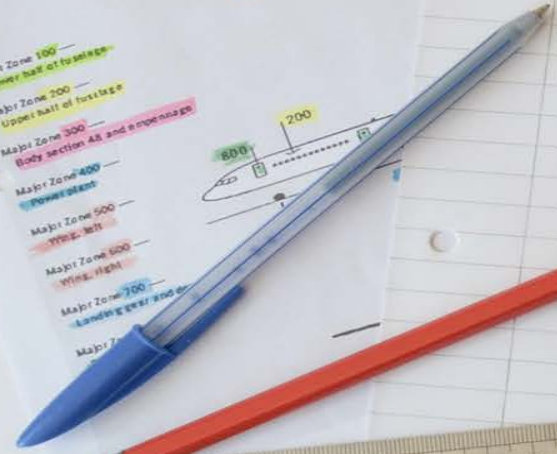 Zone 100
half of fuselage
Zone 200
Upper half of fuselage
Major Zone 300
Body section 48 and empennage
Major Zone 400
Power plant
Major Zone 500
Wing, left
Major Zone 600
Wing, right
Major Zone 700
Landing gear and
Major
800
200